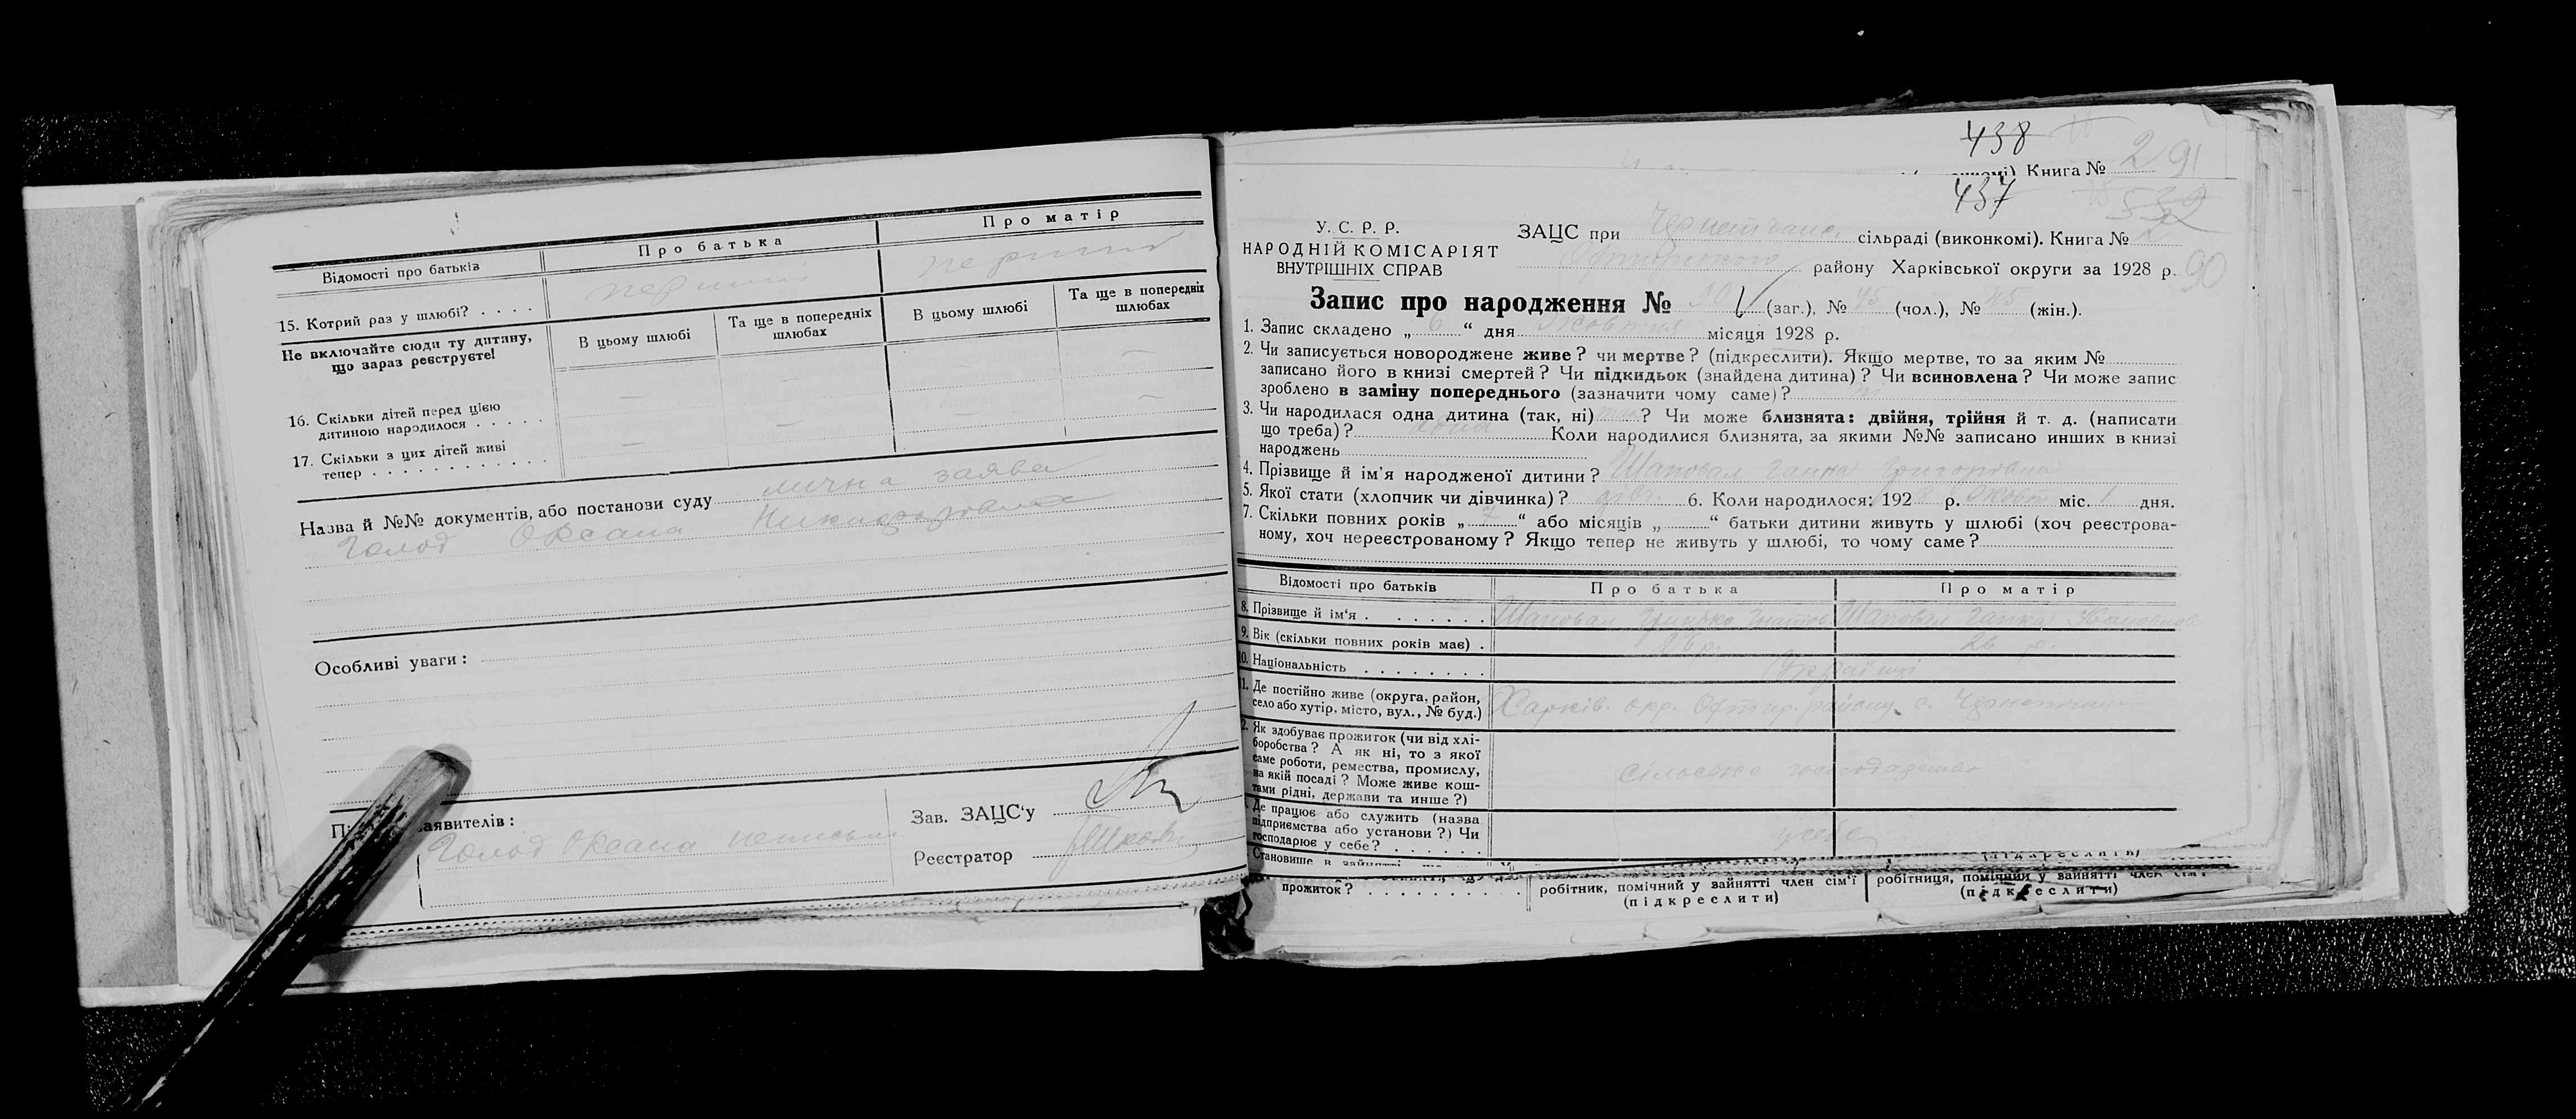 Відомості про батьків
Про батька
Про матір
15. Котрий раз у шлюбі? . . . .
перший
перший
Не включайте сюди ту дитину,
що зараз реєструєте!
В цьому шлюбі
Та ще в попередніх
шлюбах
В цьому шлюбі
Та ще в попередніх
шлюбах
16. Скільки дітей перед цією
дитиною народилося . . . . .
— — — —
17. Скільки з цих дітей живі
тепер . . . . . . . . . . . .
— — — —
Назва й №№ документів, або постанови суду лична заява
Голод Оксана Никифоровна
Особливі уваги:
заявителів:
Голод Оксана
Зав. ЗАЦС'у
Реєстратор
438
Книга № 2 91
437
У. С. Р. Р.
НАРОДНІЙ КОМІСАРІЯТ
ВНУТРІШНІХ СПРАВ
ЗАЦС при сільраді (виконкомі). Книга № 2
району Харківської округи за 1928 р. 90
Запис про народження № 90 (заг.), № 45 (чол.), № 45 (жін.).
1. Запис складено „ 6 “ дня Жовтня місяця 1928 р.
2. Чи записується новороджене живе? чи мертве? (підкреслити). Якщо мертве, то за яким №
записано його в книзі смертей? Чи підкидьок (знайдена дитина)? Чи всиновлена? Чи може запис
зроблено в заміну попереднього (зазначити чому саме)?
3. Чи народилася одна дитина (так, ні) ? Чи може близнята: двійня, трійня й т. д. (написати
що треба)? одна Коли народилися близнята, за якими №№ записано инших в книзі
народжень
4. Прізвище й ім'я народженої дитини? Шаповал Ганна Григоровна
5. Якої стати (хлопчик чи дівчинка)? дівч. 6. Коли народилося: 192 8 р. Жовт. міс. 1 дня.
7. Скільки повних років „ 7 “ або місяців „ “ батьки дитини живуть у шлюбі (хоч реєстрова-
ному, хоч нереєстрованому? Якщо тепер не живуть у шлюбі, то чому саме?
Відомості про батьків
Про батька
Про матір
8. Прізвище й ім'я . . . . . . .
Шаповал
Шаповал Ганна
9. Вік (скільки повних років має) .
26 р.
26 р.
10. Національність . . . . . . . .
Українці
1. Де постійно живе (округа, район,
село або хутір, місто, вул., № буд.)
Харків. окр. Охтир. району с.
2. Як здобуває прожиток (чи від хлі-
боробства? А як ні, то з якої
саме роботи, ремества, промислу,
на якій посаді? Може живе кош-
тами рідні, держави та инше?)
сільське господарство
Де працює або служить (назва
підприємства або установи?) Чи
господарює у себе? . . . . . .
у себе
Становище в зайнятті
(підкреслити)
прожиток? . . . . . . . . . .
робітник, помічний у зайнятті член сім'ї
(підкреслити)
робітниця, помічний у зайнятті член сім'ї
(підкреслити)